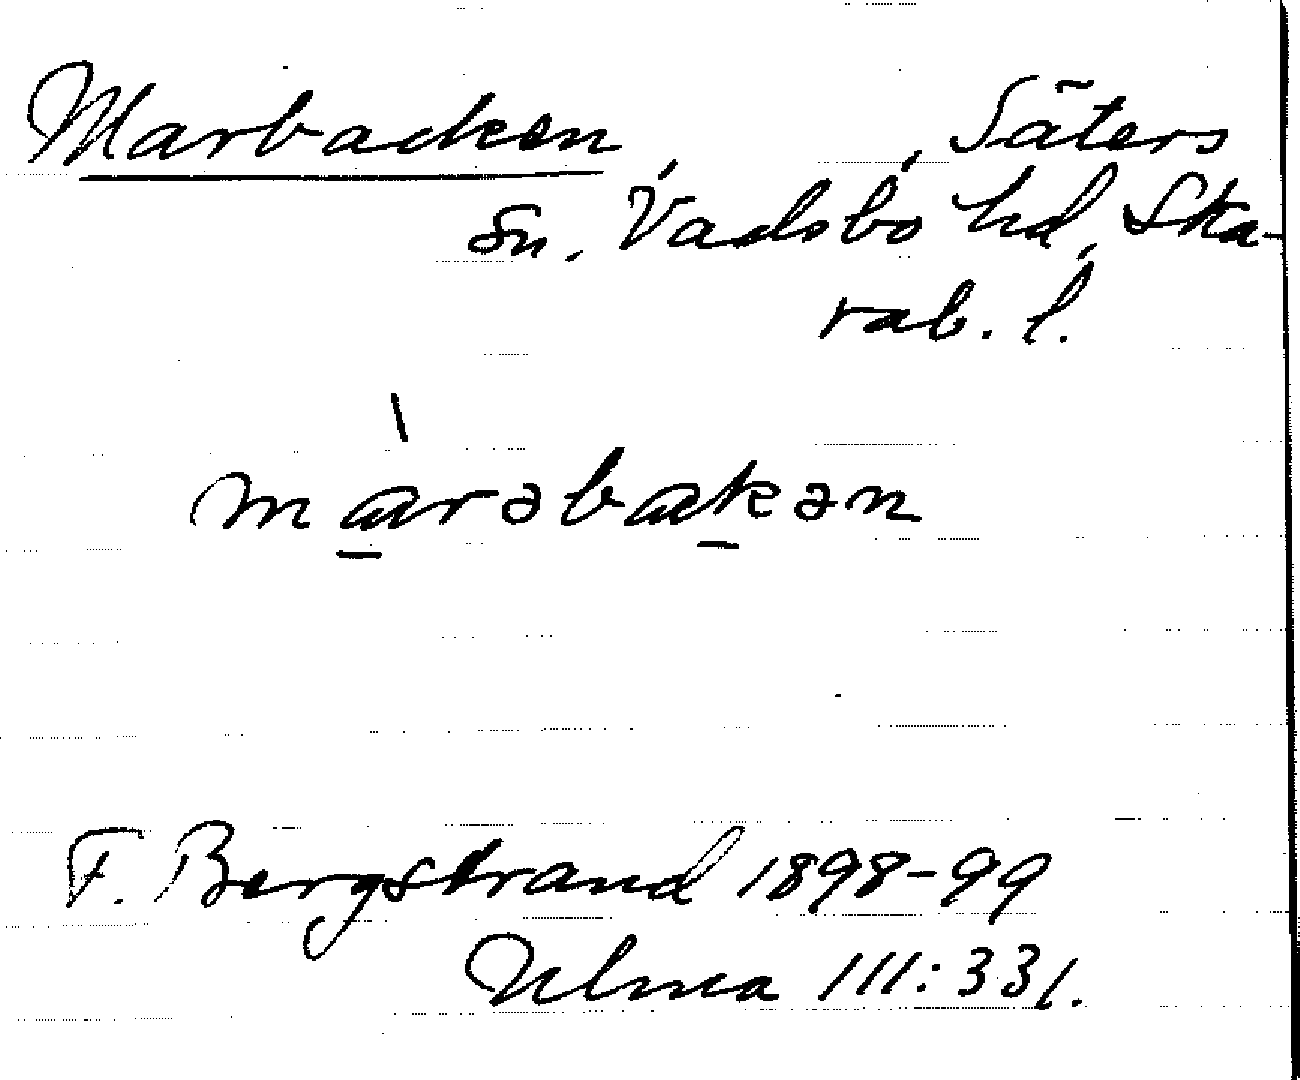 Marbacken, , Säters
sn., Vadsbo hd, Ska-
rab. l.
màrəbakən
F. Bergstrand 1898-99
Ulma 111:331.